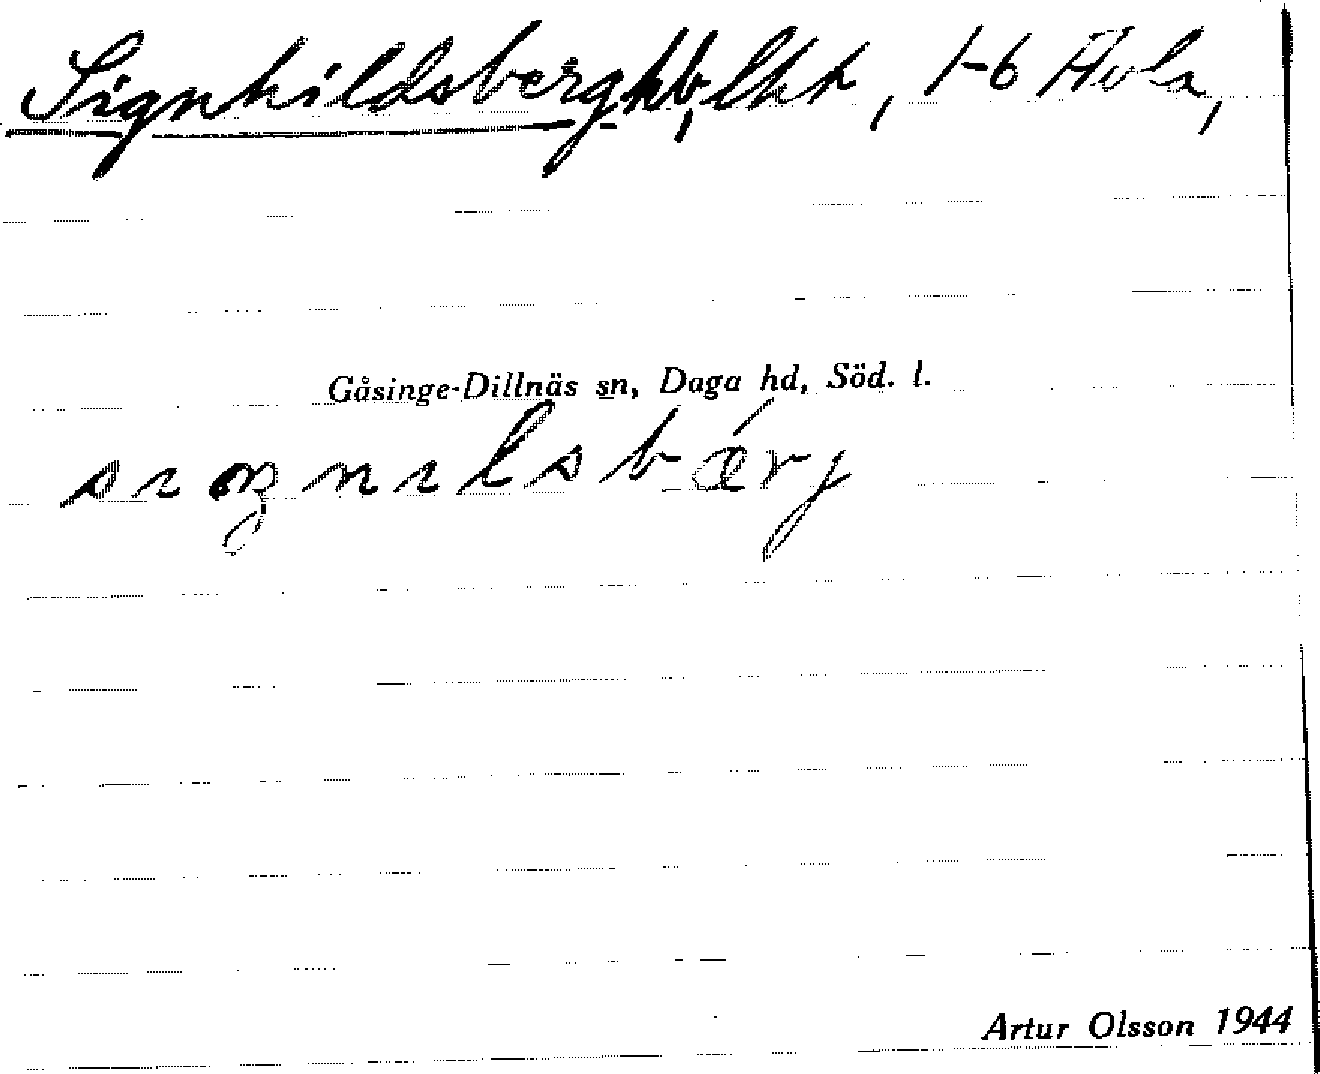 Signhildsberg hb, lht, 1-6 Åvla,
Gåsinge-Dillnäs sn, Daga hd, Söd. l.
sıŋnılsbǽrj
Artur Olsson 1944